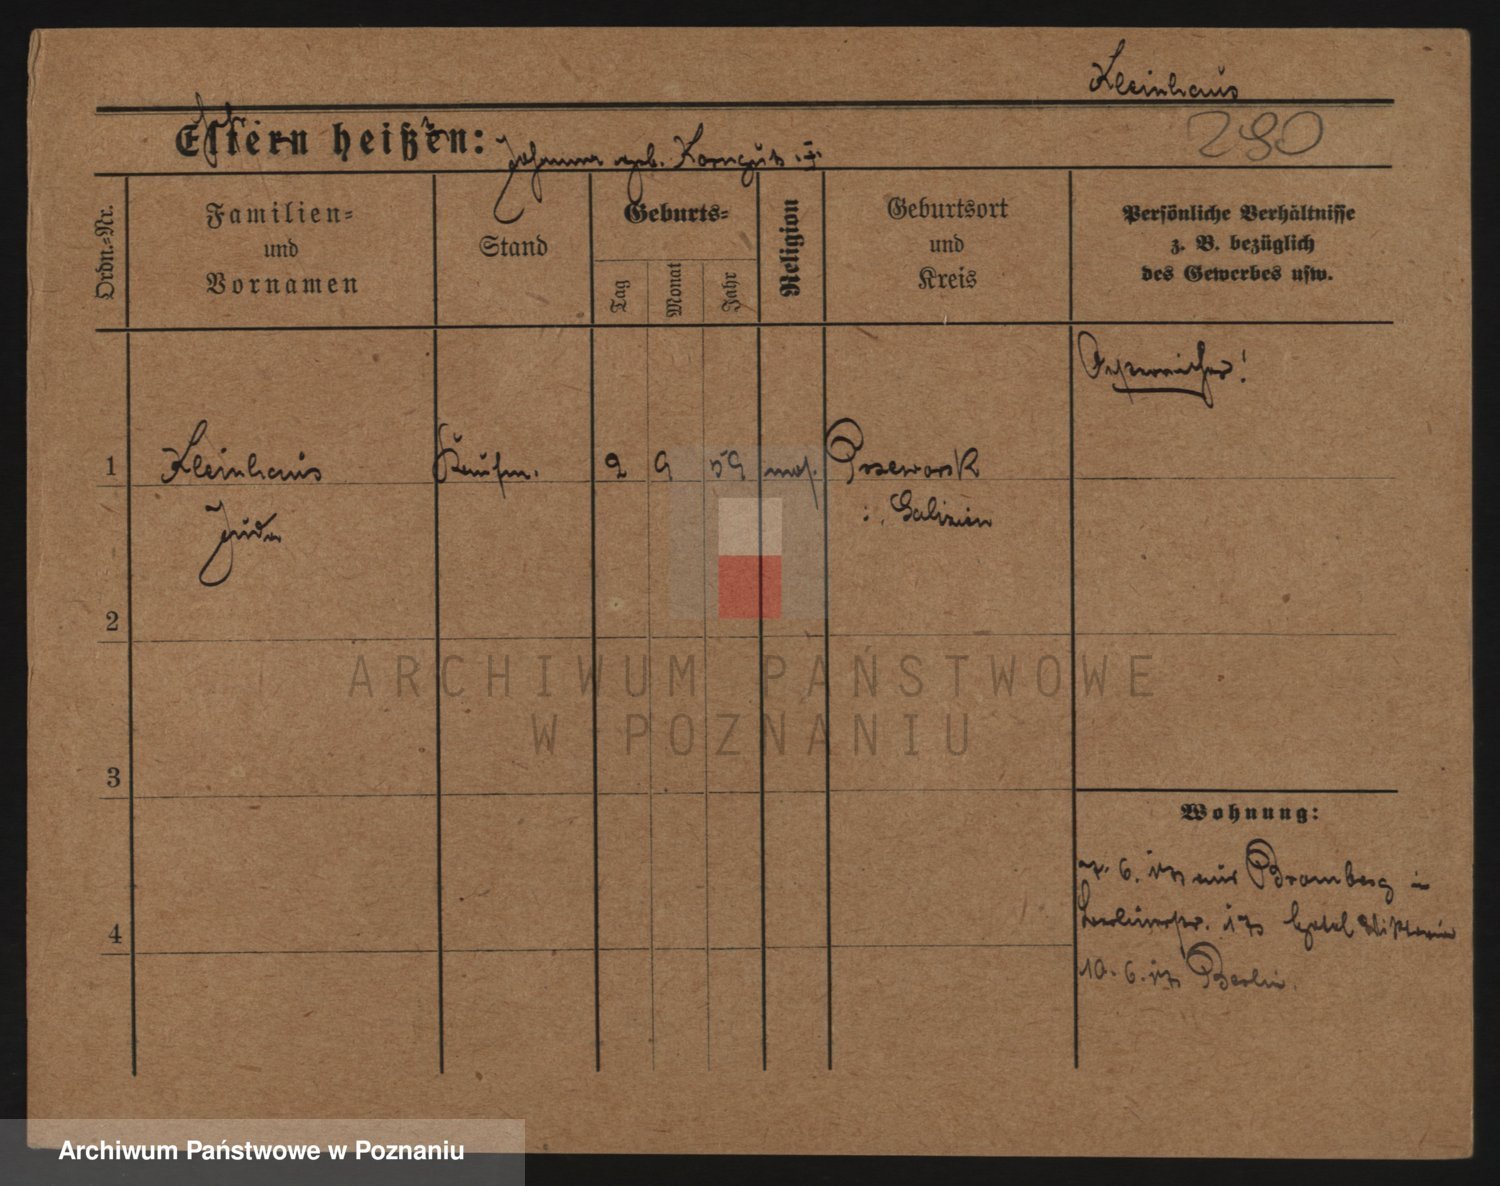 Kleinhaus
290
Eltern heißen:
Johanna geb. Korngut ±
Ordn.=Nr.
Familien=
und
Vornamen
Stand
Geburts=
Tag
Monat
Jahr
Religion
Geburtsort
und
Kreis
Persönliche Verhältnisse
z. B. bezüglich
des Gewerbes usw.
Österreicher!
1
Kleinhaus
Kaufm.
2 9 59
mos.
Przeworsk
Juda
i. Galizien
2
3
Wohnung:
7. 6. 17 aus Bromberg in
Berlinerstr. 17 Hotel Viktoria
4
10. 6. 17 Berlin.
ARCHIWUM PAŃSTWOWE
W POZNANIU
Archiwum Państwowe w Poznaniu